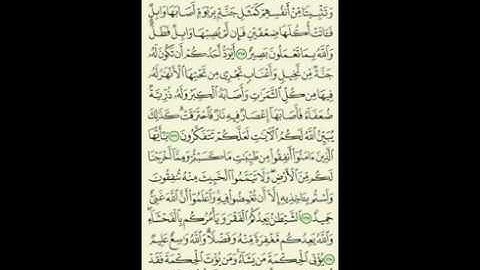 وَتَثْبِيتًا مِّنْ أَنفُسِهِمْ كَمَثَلِ جَنَّةٍ بِرَبْوَةٍ أَصَابَهَا وَابِلٌ
فَـَٔاتَتْ أُكُلَهَا ضِعْفَيْنِ فَإِن لَّمْ يُصِبْهَا وَابِلٌ فَطَلٌّ
وَٱللَّهُ بِمَا تَعْمَلُونَ بَصِيرٌ ٢٦٥ أَيَوَدُّ أَحَدُكُمْ أَن تَكُونَ لَهُۥ
جَنَّةٌ مِّن نَّخِيلٍ وَأَعْنَابٍ تَجْرِى مِن تَحْتِهَا ٱلْأَنْهَٰرُ لَهُۥ
فِيهَا مِن كُلِّ ٱلثَّمَرَٰتِ وَأَصَابَهُ ٱلْكِبَرُ وَلَهُۥ ذُرِّيَّةٌ
ضُعَفَآءُ فَأَصَابَهَآ إِعْصَارٌ فِيهِ نَارٌ فَٱحْتَرَقَتْ كَذَٰلِكَ
يُبَيِّنُ ٱللَّهُ لَكُمُ ٱلْـَٔايَٰتِ لَعَلَّكُمْ تَتَفَكَّرُونَ ٢٦٦ يَٰٓأَيُّهَا
ٱلَّذِينَ ءَامَنُوٓا۟ أَنفِقُوا۟ مِن طَيِّبَٰتِ مَا كَسَبْتُمْ وَمِمَّآ أَخْرَجْنَا
لَكُم مِّنَ ٱلْأَرْضِ وَلَا تَيَمَّمُوا۟ ٱلْخَبِيثَ مِنْهُ تُنفِقُونَ
وَلَسْتُم بِـَٔاخِذِيهِ إِلَّآ أَن تُغْمِضُوا۟ فِيهِ وَٱعْلَمُوٓا۟ أَنَّ ٱللَّهَ غَنِىٌّ
حَمِيدٌ ٢٦٧ ٱلشَّيْطَٰنُ يَعِدُكُمُ ٱلْفَقْرَ وَيَأْمُرُكُم بِٱلْفَحْشَآءِ
وَٱللَّهُ يَعِدُكُم مَّغْفِرَةً مِّنْهُ وَفَضْلًا وَٱللَّهُ وَٰسِعٌ عَلِيمٌ
٢٦٨ يُؤْتِى ٱلْحِكْمَةَ مَن يَشَآءُ وَمَن يُؤْتَ ٱلْحِكْمَةَ فَقَدْ